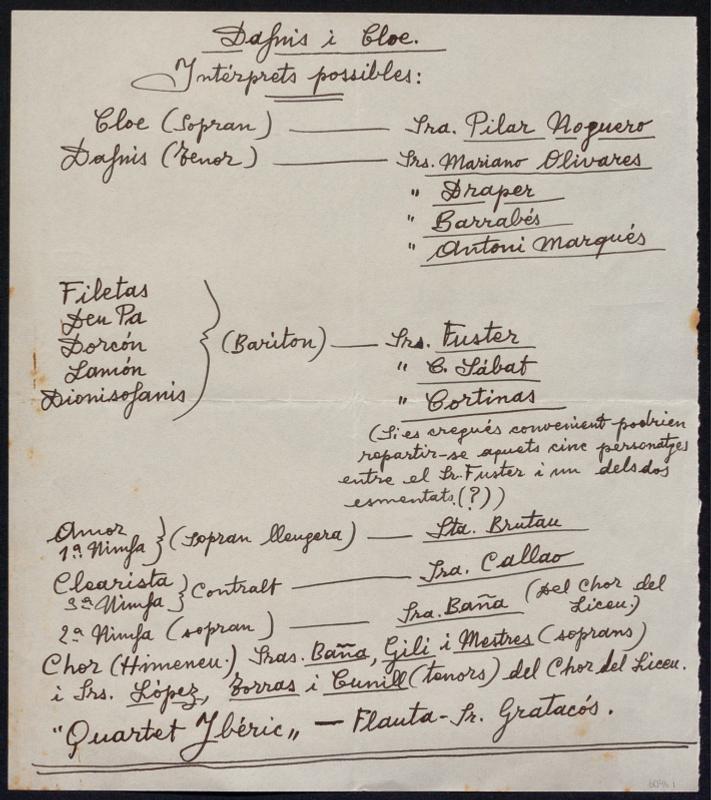 Dafnis i Cloe.
Intérprets possibles:
Cloe (Sopran) — Sra. Pilar Noguero
Dafnis (Tenor) — Srs. Mariano Olivares
" Draper
" Barrabés
" Antoni Marqués
Filetas
Deu Pa
Dorcón
Lamón
Dionisofanis
(Bariton) — Srs. Fuster
" C. Sábat
" Cortinas
(Si es cregués convenient podrien
repartir-se aquets cinc personatges
entre el Sr. Fuster i un dels dos
esmentats.(?))
Amor
1ª Nimfa } (Sopran lleugera) — Sta. Brutau
Clearista
3ª Nimfa } Contralt — Sra. Callao
2ª Nimfa (sopran) — Sra. Baña (Del Chor del
Liceu.)
Chor (Himeneu.) Sras. Baña, Gili i Mestres (soprans)
i Srs. López, Torras i Cunill (tenors) del Chor del Liceu.
"Quartet Ybéric„ — Flauta - Sr. Gratacós.